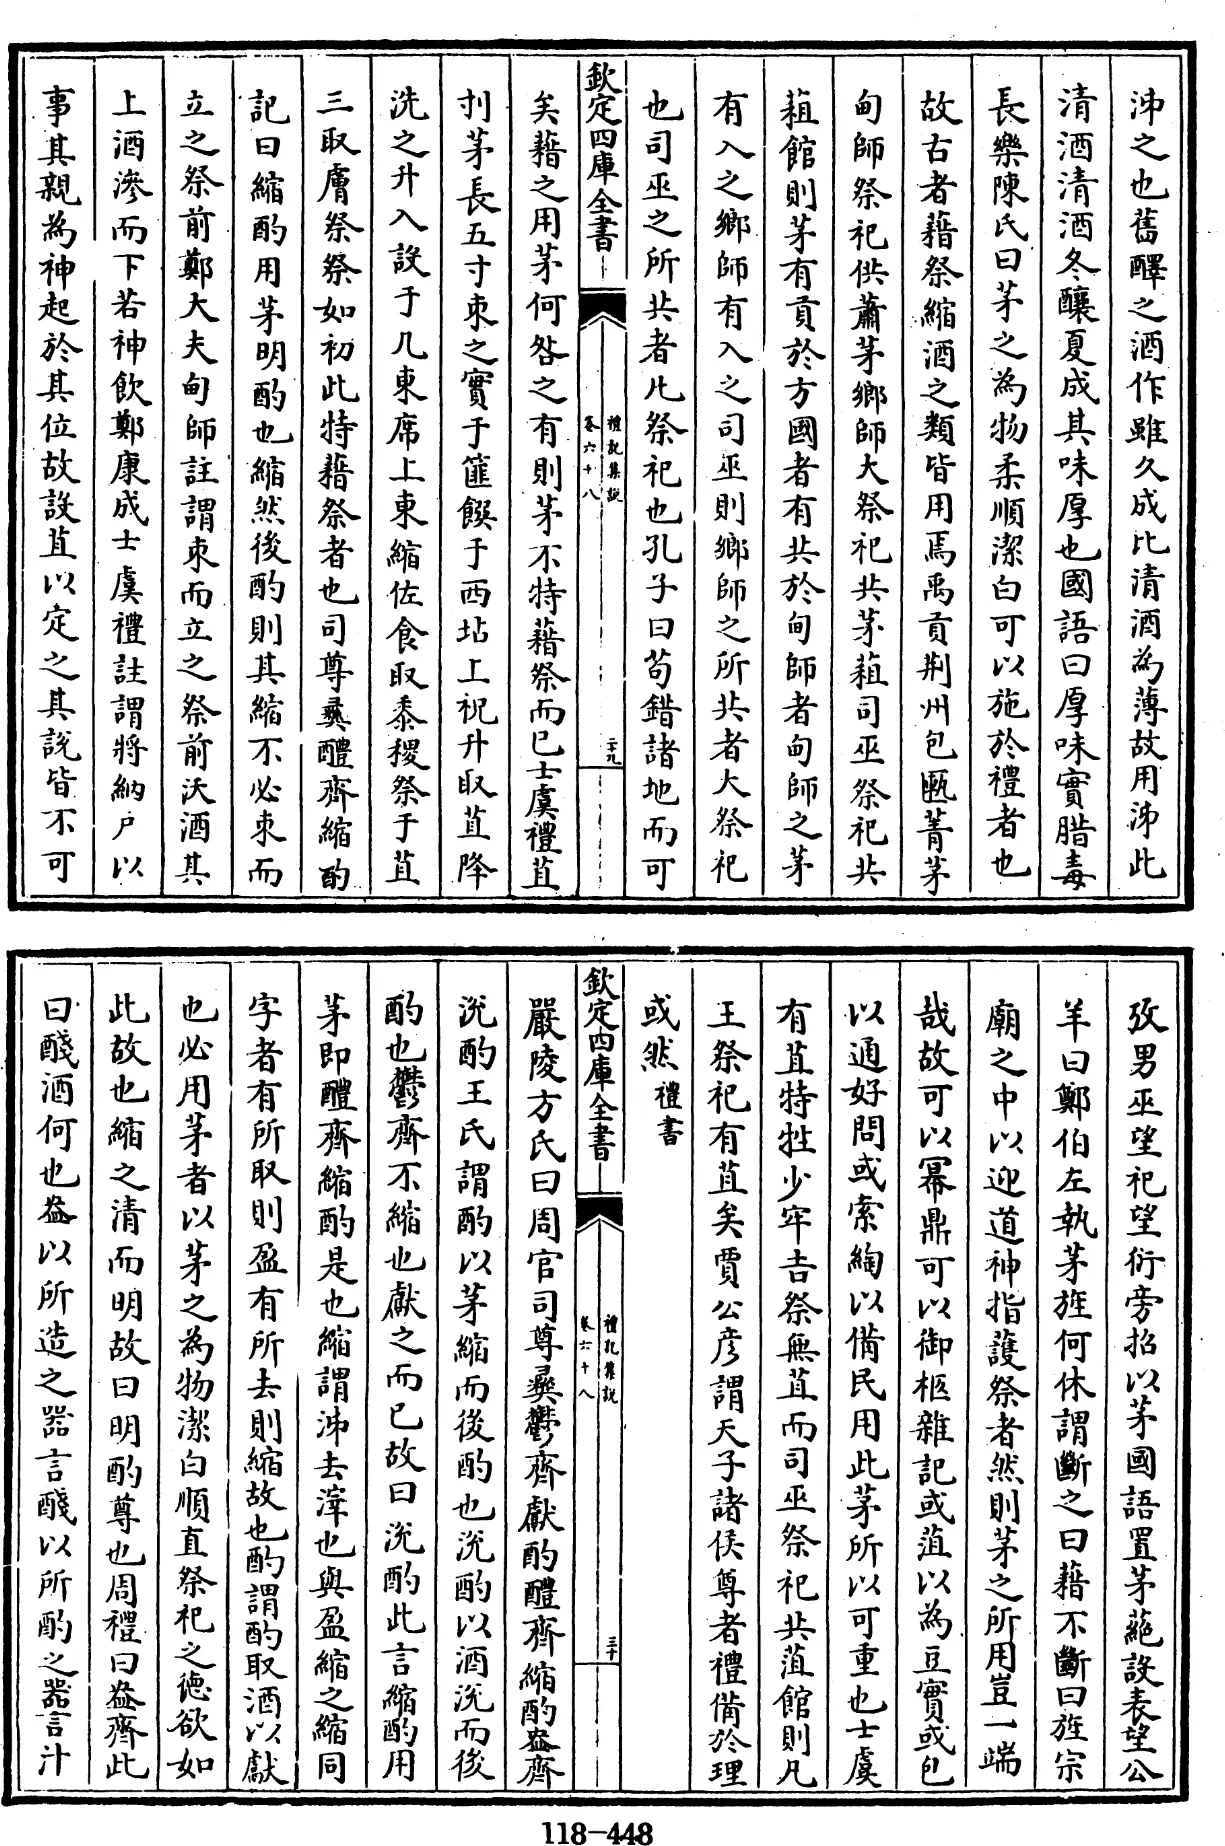 泲之也舊醳之酒作雖久成比清酒為薄故用泲此
清酒清酒冬釀夏成其味厚也國語曰厚味實腊毒
長樂陳氏曰茅之為物柔順潔白可以施於禮者也
故古者藉祭縮酒之類皆用焉禹貢荆州包匭菁茅
甸師祭祀供蕭茅鄉師大祭祀共茅蒩司巫祭祀共
蒩館則茅有貢於方國者有共於甸師者甸師之茅
有入之鄉師有入之司巫則鄉師之所共者大祭祀
也司巫之所共者凡祭祀也孔子曰茍錯諸地而可
欽定四庫全書
禮記集說
卷六十八
二十九
矣藉之用茅何咎之有則茅不特藉祭而已士虞禮苴
刌茅長五寸束之實于篚饌于西坫上祝升取苴降
洗之升入設于几東席上東縮佐食取黍稷祭于苴
三取膚祭祭如初此特藉祭者也司尊彞醴齊縮酌
記曰縮酌用茅明酌也縮然後酌則其縮不必束而
立之祭前鄭大夫甸師註謂束而立之祭前沃酒其
上酒滲而下若神飲鄭康成士虞禮註謂將納尸以
事其親為神起於其位故設苴以定之其說皆不可
攷男巫望祀望衍旁招以茅國語置茅蕝設表望公
羊曰鄭伯左執茅旌何休謂斷之曰藉不斷曰旌宗
廟之中以迎道神指護祭者然則茅之所用豈一端
哉故可以冪鼎可以御柩雜記或菹以為豆實或包
以通好問或索綯以備民用此茅所以可重也士虞
有苴特牲少牢吉祭無苴而司巫祭祀共菹館則凡
王祭祀有苴矣賈公彦謂天子諸侯尊者禮備於理
或然禮書
欽定四庫全書
禮記集說
卷六十八
三十
嚴陵方氏曰周官司尊彞鬱齊獻酌醴齊縮酌盎齊
涗酌王氏謂酌以茅縮而後酌也涗酌以酒涗而後
酌也鬱齊不縮也獻之而已故曰涗酌此言縮酌用
茅即醴齊縮酌是也縮謂泲去滓也與盈縮之縮同
字者有所取則盈有所去則縮故也酌謂酌取酒以獻
也必用茅者以茅之為物潔白順直祭祀之德欲如
此故也縮之清而明故曰明酌尊也周禮曰盎齊此
曰醆酒何也盎以所造之器言醆以所酌之器言汁
118-448